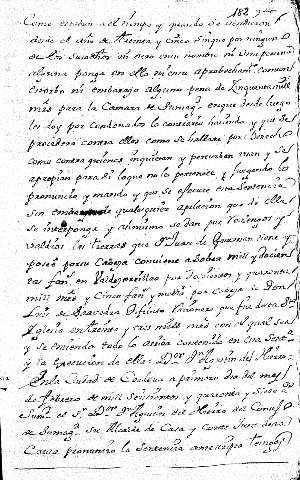 182
Como estaban al tiempo y quando se vendieron
desde el año de treinta y cinco sin que por ninguno
de los susodhos ni otro en su nombre ni otra persona
alguna ponga en ello ni en su aprobechamto
estorbo ni embarazo alguno pena de cinquenta mill
mrs para la Camara de su magd en que desde luego
les doy por condenados lo contrario haciendo y que se
procedera contra ellos como se hallare por derecho
como contra quienes inquietan y perturban usan y se
apropian para si lo que no le pertenece y juzgando lo
pronuncio y mando y que se execute esta sentencia
sin embargo de qualesquier apelacion que de ella
se interponga y asimismo se dan por realengos y
valdios las tierras que Dn Juan de Guzman tiene y
posee por su cabeza conviene a saber mill y docien
tas fans en
mill mrs y cinco fans y
Luis de Saavedra difunto
Iglesia en treinta y tres mill mrs con el qual sea
y se entienda todo lo demas contenido en esta sentencia
y la execusion de ella Dor Dn Agustin del Hierro
En la Ciudad de Cordova a primero dia del mes
de febrero de mill seiscientos y quarenta y siete
Sumd el Sr Dor Dn Agustin del Hierro del Consejo
de su magd su Alcalde de Casa y Corte Juez de esta
Causa pronuncio la sentencia